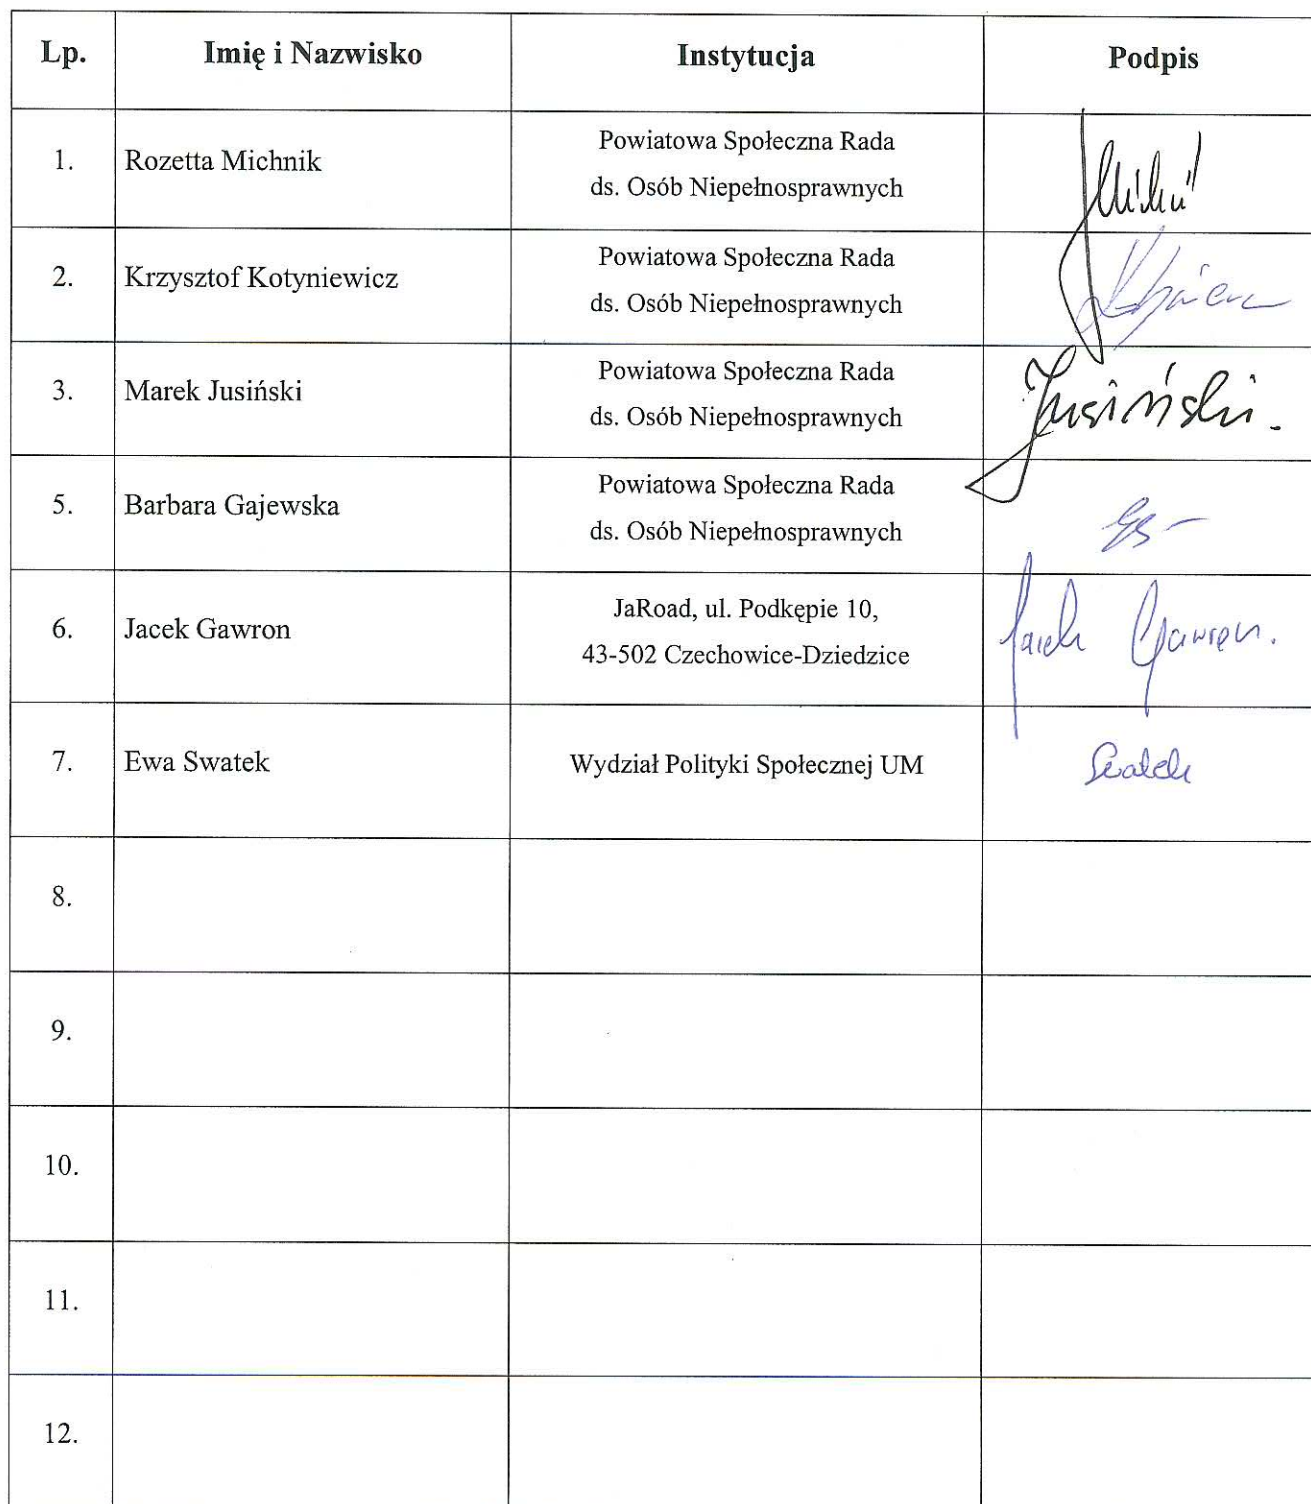 Lp. Imię i Nazwisko Instytucja Podpis
1. Rozetta Michnik Powiatowa Społeczna Rada
ds. Osób Niepełnosprawnych
2. Krzysztof Kotyniewicz Powiatowa Społeczna Rada
ds. Osób Niepełnosprawnych
3. Marek Jusiński Powiatowa Społeczna Rada
ds. Osób Niepełnosprawnych
Jusiński.
5. Barbara Gajewska Powiatowa Społeczna Rada
ds. Osób Niepełnosprawnych
6. Jacek Gawron JaRoad, ul. Podkępie 10,
43-502 Czechowice-Dziedzice
Jacek Gawron.
7. Ewa Swatek Wydział Polityki Społecznej UM Swatek
8.
9.
10.
11.
12.